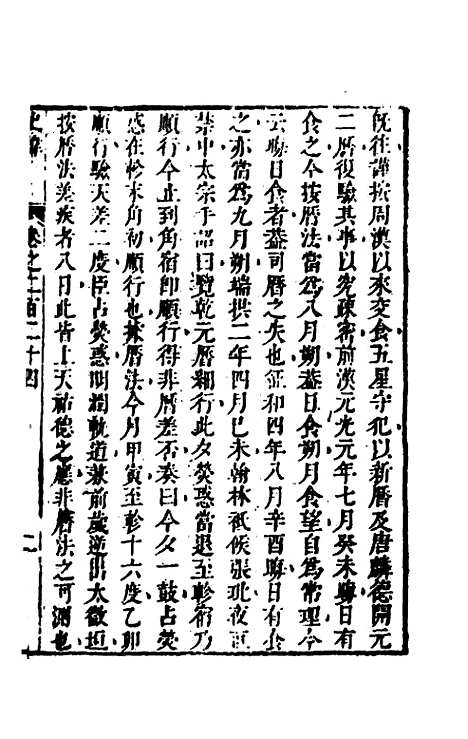 既往謹按周漢以來交食五星守犯以新曆及唐麟德開元
二曆復驗其事以究疎密前漢元光元年七月癸未晦日有
食之今按曆法當爲八月朔葢日食朔月食望自爲常理今
云晦日食者葢司曆之失也征和四年八月辛酉晦日有食
之亦當爲九月朔端拱二年四月巳未翰林祇候張玭夜直
禁中太宗手詔曰覽乾元曆細行此夕熒惑當退至軫宿乃
順行今止到角宿卽順行得非曆差否奏曰今夕一鼓占熒
惑在軫末角初順行也據曆法今月甲寅至軫十六度乙卯
順行驗天差二度臣占熒惑明潤軌道兼前歲逆出太微垣
按曆法差疾者八日此皆上天祐德之應非曆法之可測也
卷之二百二十四
二